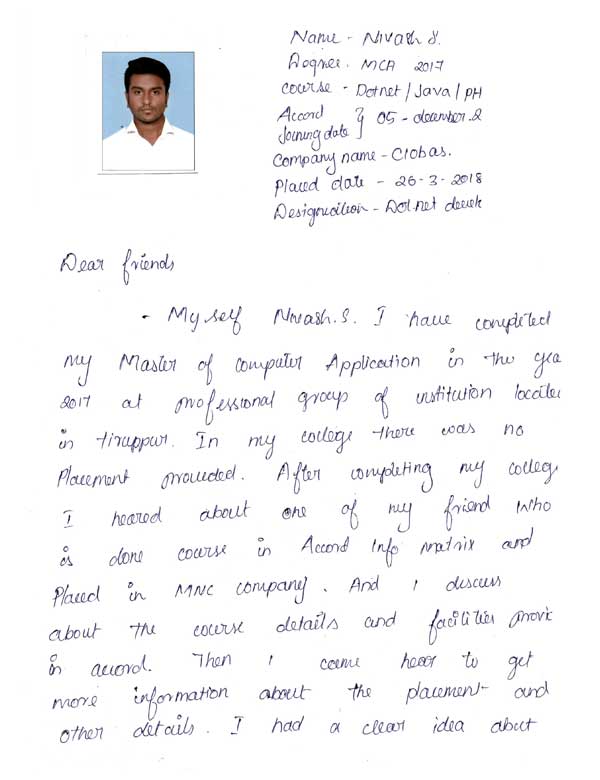 Name - Nivash S.
Degree. MCA 2017
course - Dotnet / Java / PH
Accord
Joining date } 05 - december. 2
Company name - Ciobas.
Placed date - 26-3-2018
Designation - Dot.net
Dear friends
- My self Nivash.S. I have completed
my Master of computer Application in the yea
2017 at professional group of institution locate
in tiruppur. In my college there was no
Placement provided. After completing my colleg
I heared about one of my friend who
is done course in Accord Info matrix and
Placed in MNC company. And I discuss
about the course details and facilities provi
in accord. Then I came hear to get
more information about the placement and
other details. I had a clear idea about